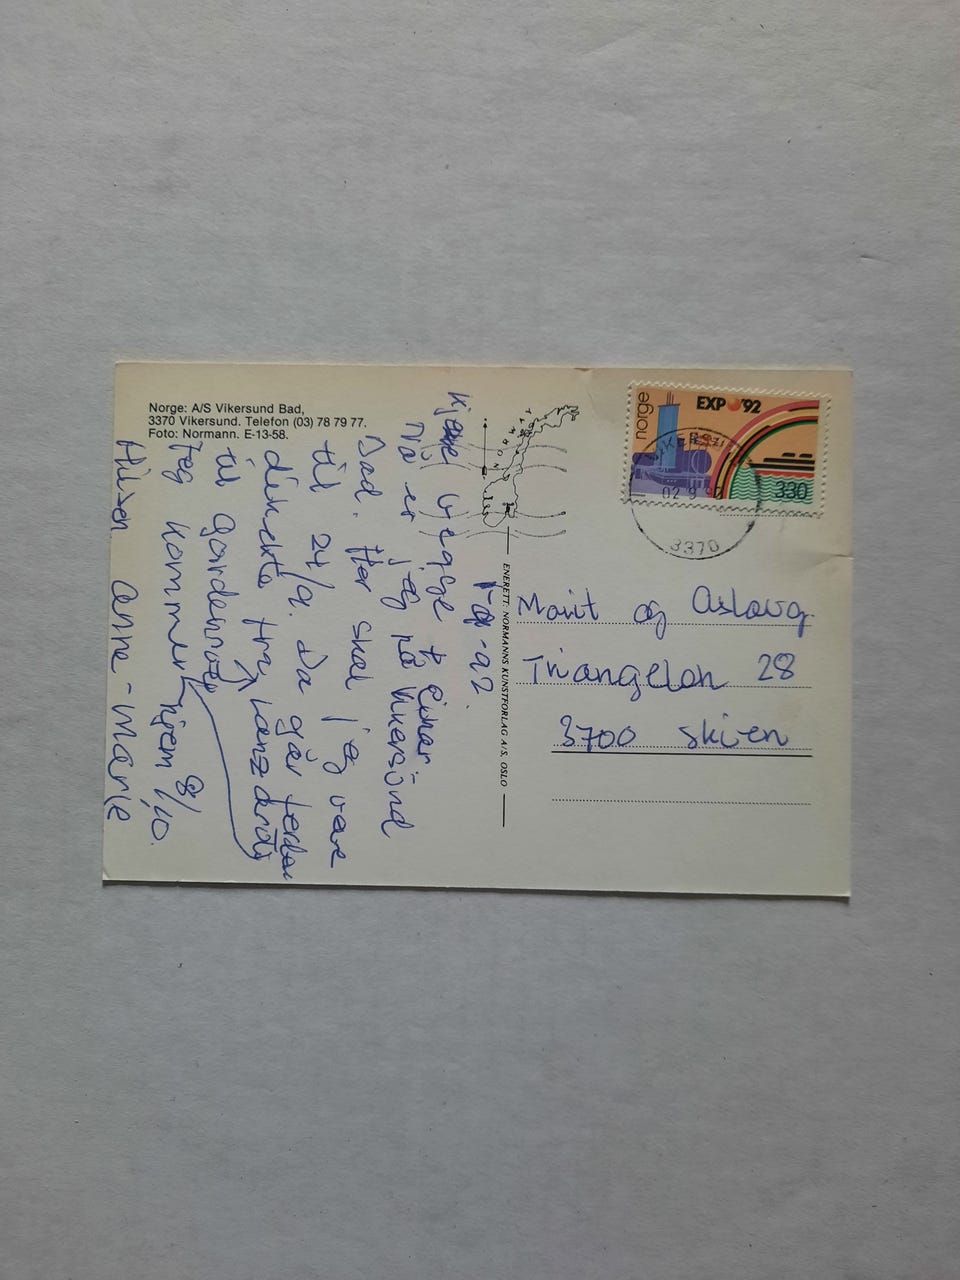 Norge: A/S Vikersund Bad,
3370 Vikersund. Telefon (03) 78 79 77.
Foto: Normann. E-13-58.
1-9-92
Kjære begge + Einar
Nå er jeg på Vikersund
Bad. Her skal jeg være
til 24/9. Da går ferden
direkte fra Lanzarote
til Gardemoen
Jeg kommer hjem 8/10.
Hilsen Anne-Marie
NORWAY
ENERETT: NORMANNS KUNSTFORLAG A/S, OSLO
norge
EXPO '92
330
02 9 92
3370
Marit og Aslaug
Triangelen 28
3700 Skien